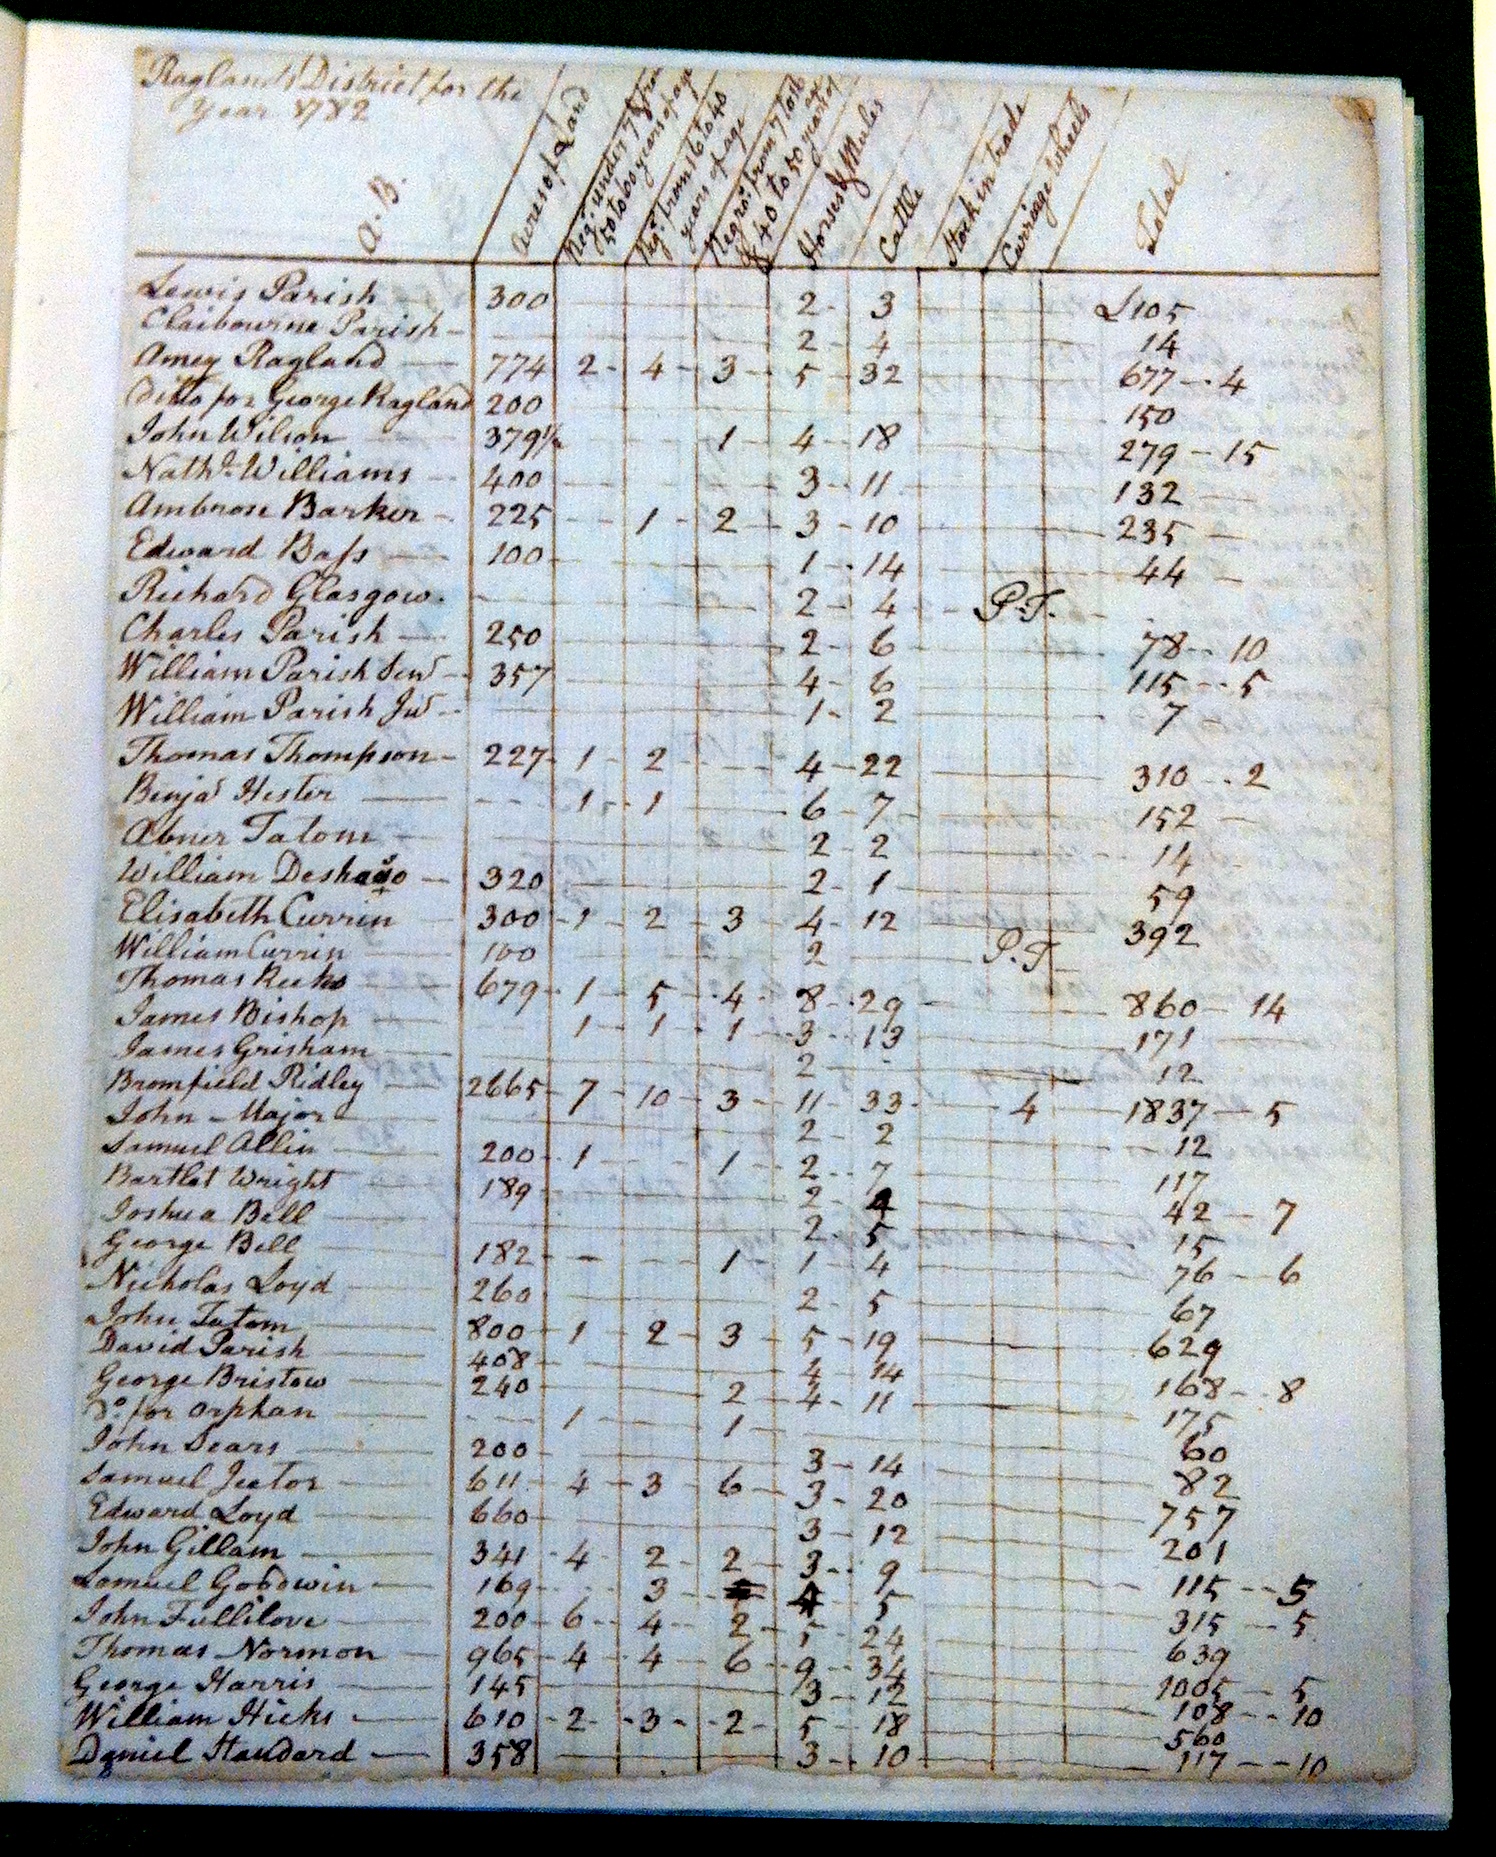 Raglands District for the
Year 1782
A. B.
Acres of Land
Negs. under 7 & from 50 to 60 years of age
Negs. from 16 to 40 years of age
Negros. from 7 to 16 & 40 to 50 years of age
Horses & Mules
Cattle
Stock in trade
Carriage Wheels
Total
Lewis Parish 300 2 3 £105
Claibourne Parish 2 4 14
Amey Ragland 774 2 4 3 5 32 677 4
Ditto for George Ragland 200 150
John Wilson 379½ 1 4 18 279 15
Nathl. Williams 400 3 11 132
Ambrose Barker 225 1 2 3 10 235
Edward Bass 100 1 14 44
Richard Glasgow. 2 4 P.T.
Charles Parish 250 2 6 78 10
William Parish Senr 357 4 6 115 5
William Parish Jur 1 2 7
Thomas Thompson 227 1 2 4 22 310 2
Benja Hester 1 1 6 7 152
Abner Tatom 2 2 14
William 320 2 1 59
Elisabeth Currin 300 1 2 3 4 12 392
William Currin 100 2 P.T
Thomas 679 1 5 4 8 29 860 14
James Bishop 1 1 1 3 13 171
James Grisham 2 12
Bromfield Ridley 2665 7 10 3 11 33 4 1837 5
John Major 2 2 12
Samuel Allin 200 1 1 2 7 117
Bartlet Wright 189 2 4 42 7
Joshua Bell 2 5 15
George Bell 182 1 1 4 76 6
Nicholas Loyd 260 2 5 67
John Tatom 800 1 2 3 5 19 629
David Parish 408 4 14 168 8
George Bristow 240 2 4 11 175
Do. for Orphan 1 1 60
John Sears 200 3 14 82
Samuel Jeeter 611 4 3 6 3 20 757
Edward Loyd 660 3 12 201
John Gillam 341 4 2 2 3 9 115 5
Samuel Goodwin 169 3 4 5 315 5
John Fullilove 200 6 4 2 5 24 639
Thomas Normon 965 4 4 6 9 34 1005 5
George Harris 145 3 12 108 10
William Hicks 610 2 3 2 5 18 560
Daniel Standard 358 3 10 117 10